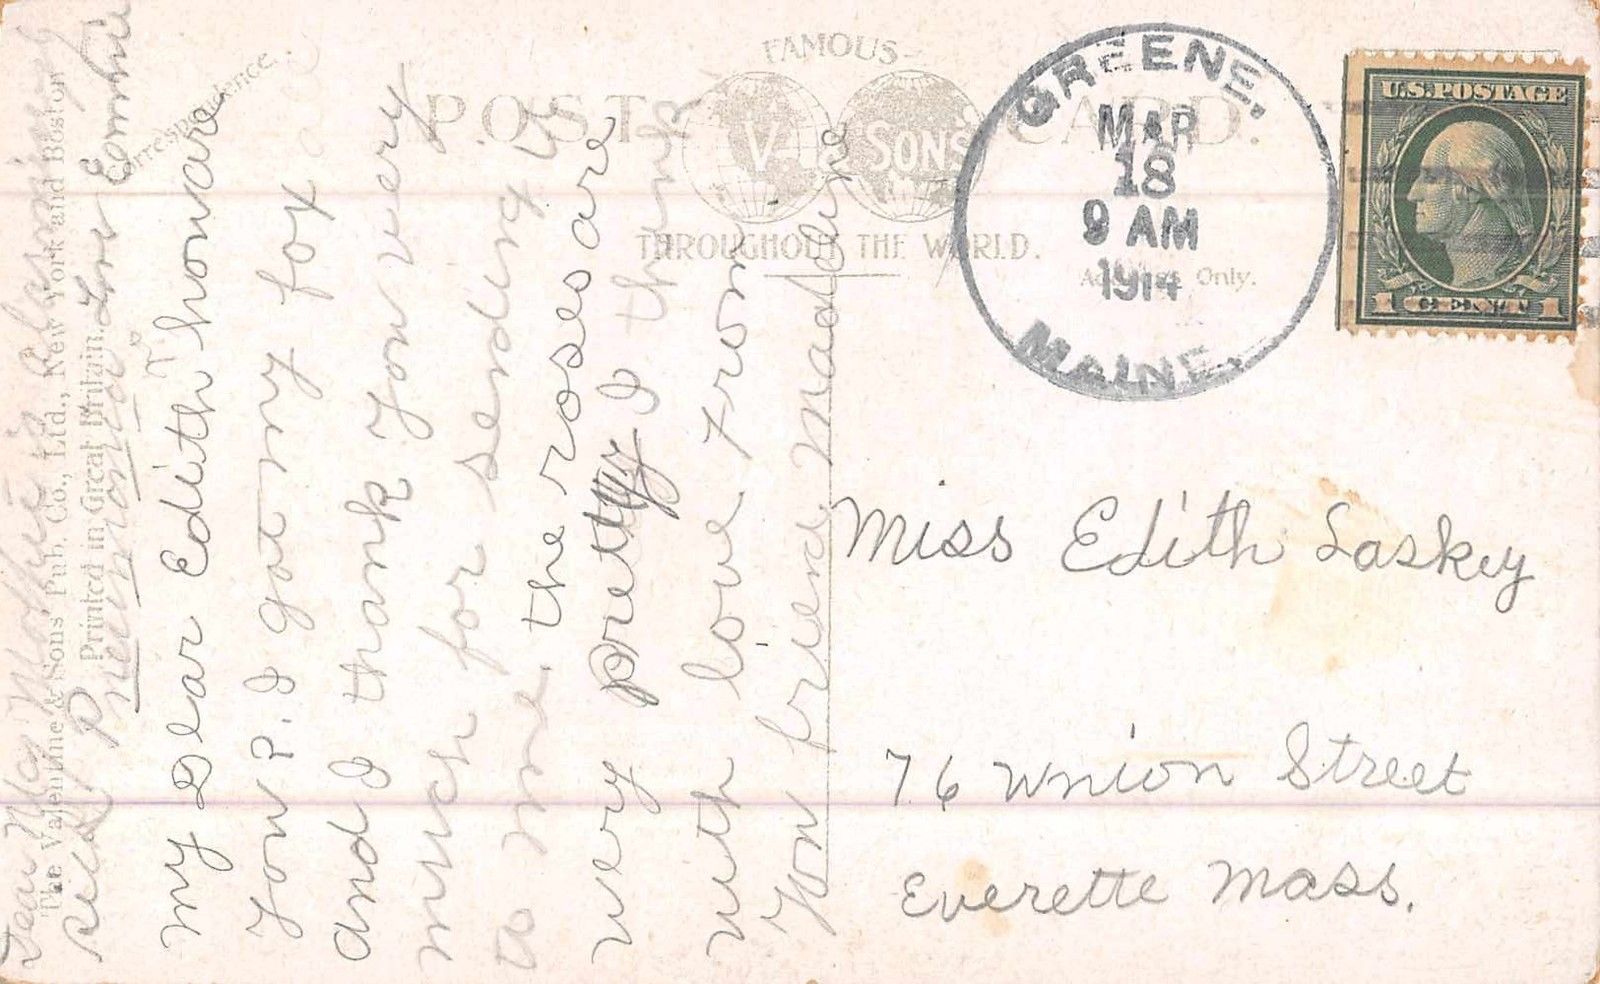 My Dear Edith how are
You?. I got my fox
and I thank you very
much for sending it
to me. the roses are
very pretty I think
with love from
You friend Madeline
Correspondence.
POST CARD.
FAMOUS
V. & SONS
THROUGHOUT THE WORLD.
Address Only.
GREENE,
MAR
18
9 AM
1914
MAINE.
U.S. POSTAGE
1 CENT 1
Miss Edith Laskey
76 Wnion Street
Everette Mass.
The Valentine & Sons Pub. Co., Ltd., New York and Boston
Printed in Great Britain.